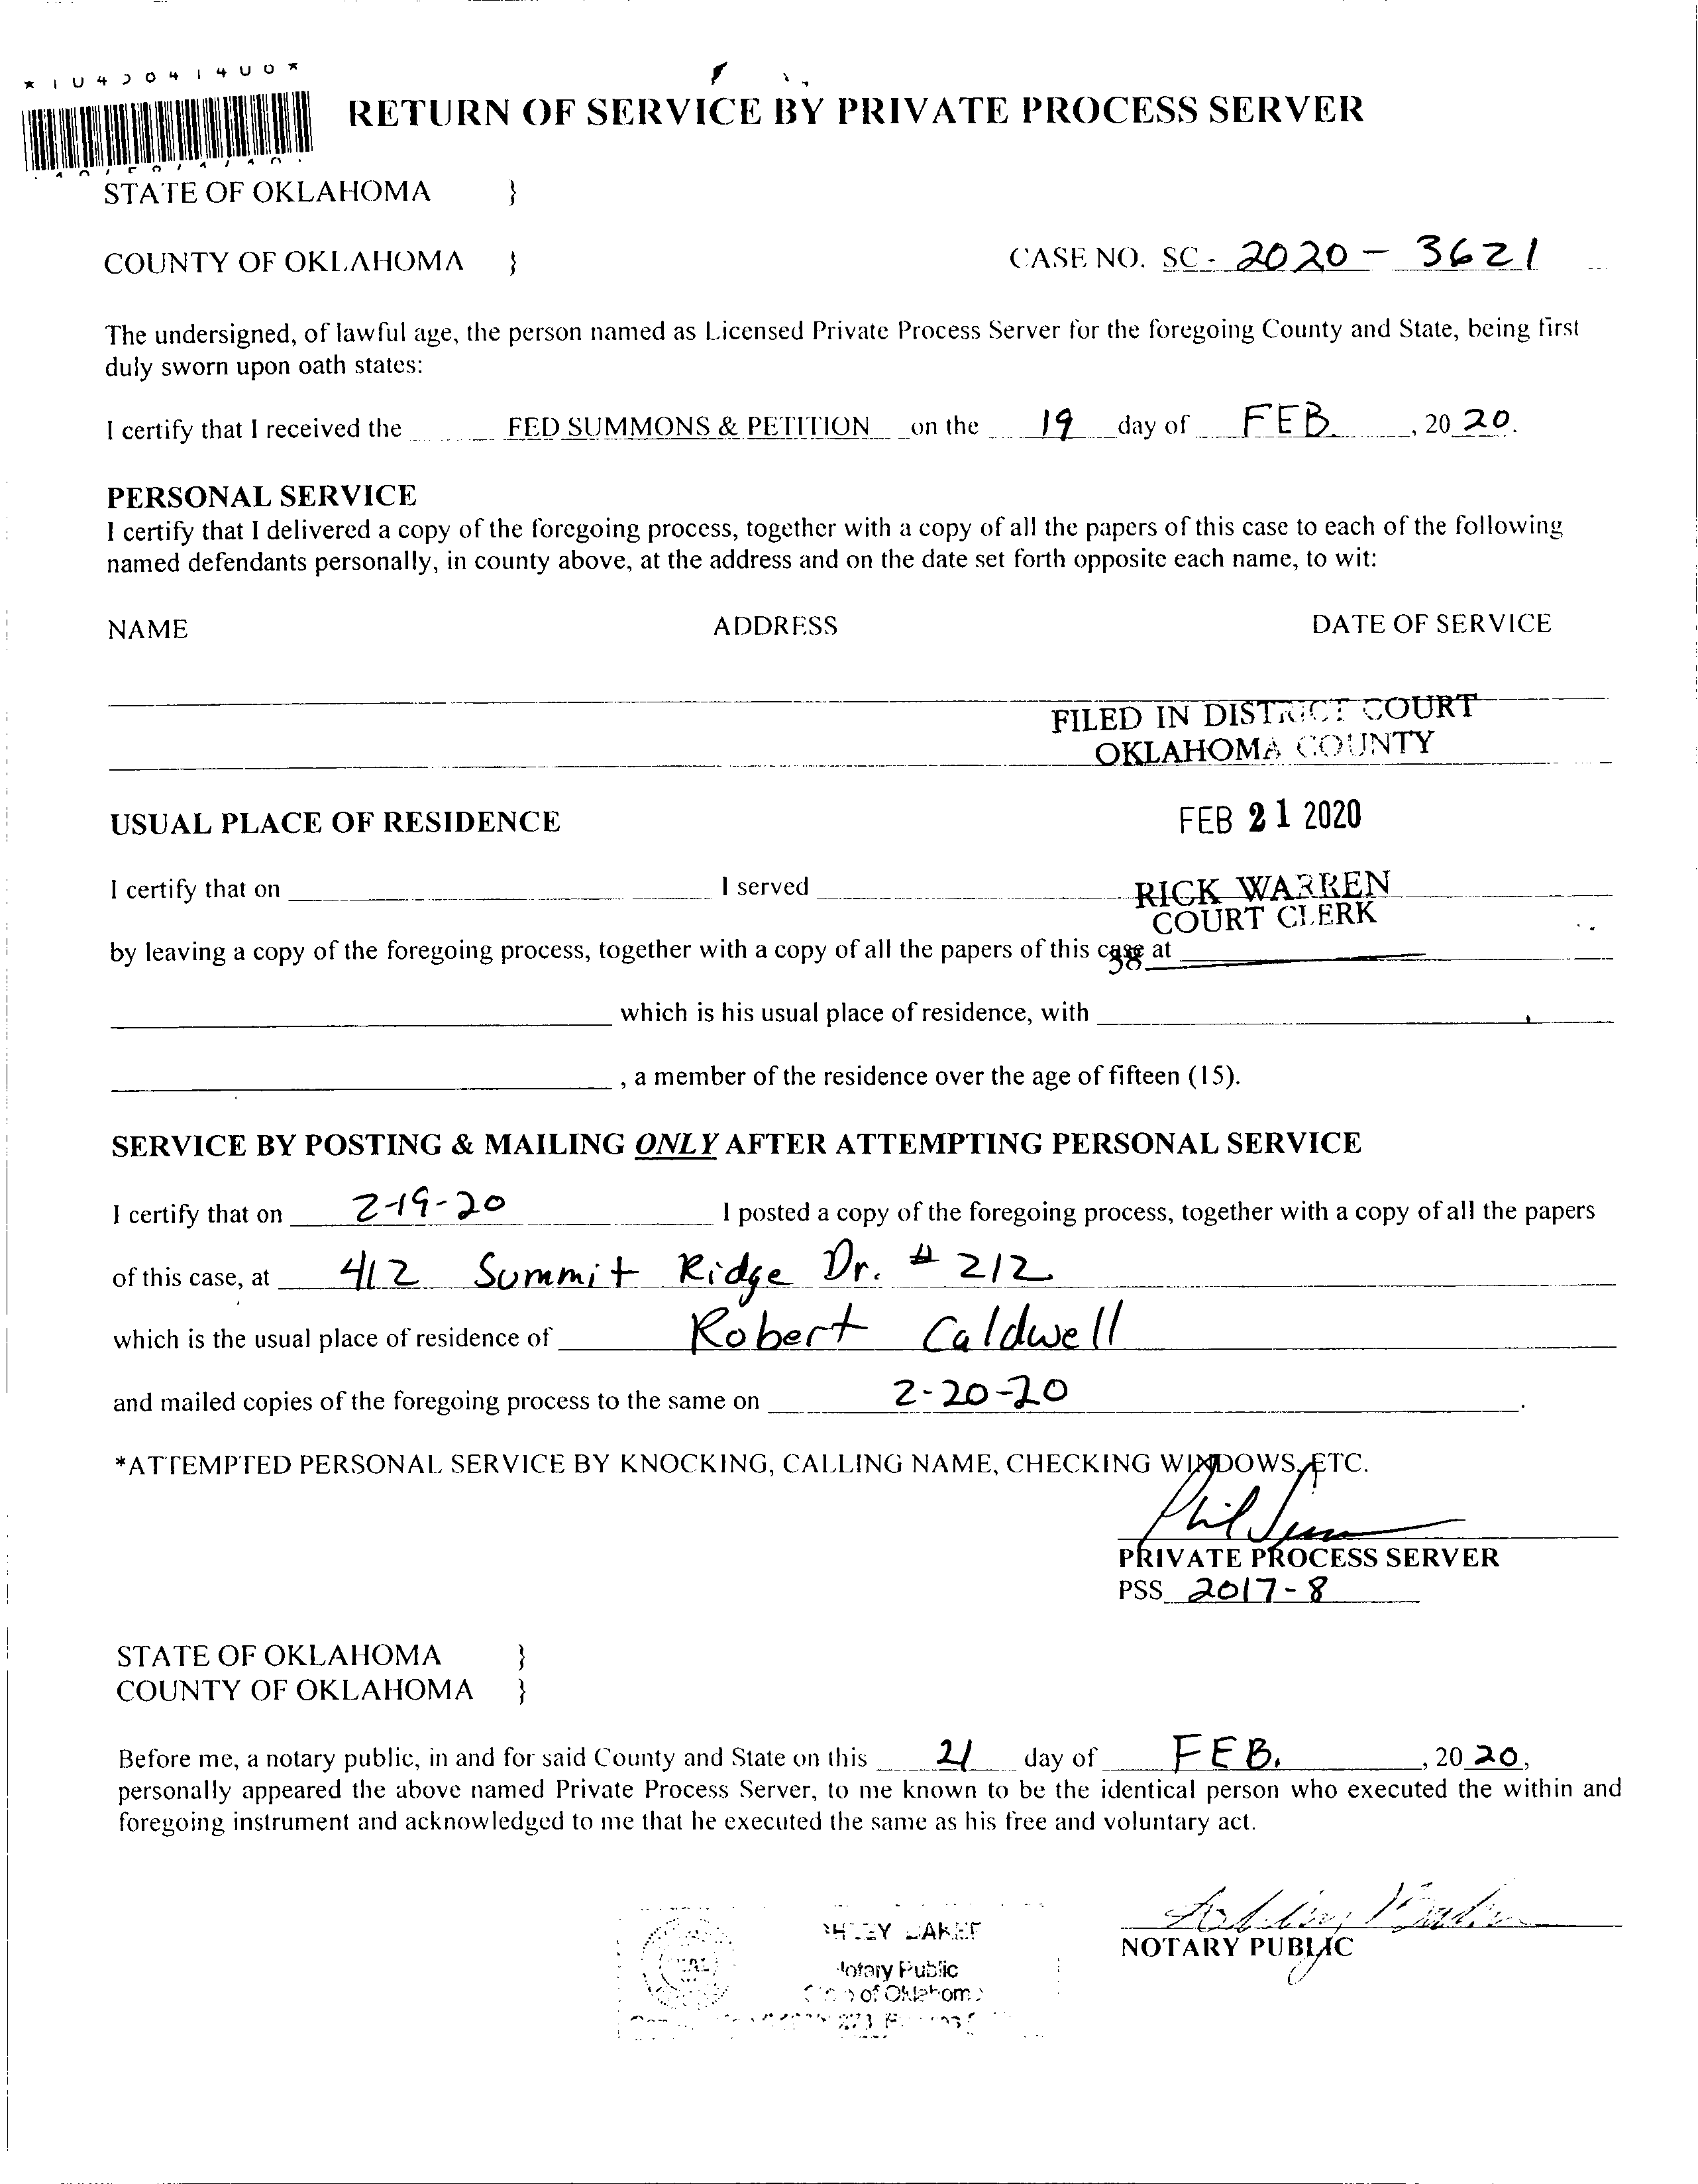 RETURN OF SERVICE BY PRIVATE PROCESS SERVER
STATE OF OKLAHOMA }
COUNTY OF OKLAHOMA } CASE NO. SC - 2020 - 3621
The undersigned, of lawful age, the person named as Licensed Private Process Server for the foregoing County and State, being first
duly sworn upon oath states:
I certify that I received the FED SUMMONS & PETITION on the 19 day of FEB. , 20 20.
PERSONAL SERVICE
I certify that I delivered a copy of the foregoing process, together with a copy of all the papers of this case to each of the following
named defendants personally, in county above, at the address and on the date set forth opposite each name, to wit:
NAME ADDRESS DATE OF SERVICE
FILED IN DISTRICT COURT
OKLAHOMA COUNTY
USUAL PLACE OF RESIDENCE FEB 21 2020
I certify that on I served RICK WARREN
COURT CLERK
by leaving a copy of the foregoing process, together with a copy of all the papers of this case at
38
which is his usual place of residence, with
, a member of the residence over the age of fifteen (15).
SERVICE BY POSTING & MAILING ONLY AFTER ATTEMPTING PERSONAL SERVICE
I certify that on 2-19-20 I posted a copy of the foregoing process, together with a copy of all the papers
of this case, at 412 Summit Ridge Dr. # 212
which is the usual place of residence of Robert Caldwell
and mailed copies of the foregoing process to the same on 2-20-20 .
*ATTEMPTED PERSONAL SERVICE BY KNOCKING, CALLING NAME, CHECKING WINDOWS, ETC.
PRIVATE PROCESS SERVER
PSS 2017-8
STATE OF OKLAHOMA }
COUNTY OF OKLAHOMA }
Before me, a notary public, in and for said County and State on this 21 day of FEB. , 20 20,
personally appeared the above named Private Process Server, to me known to be the identical person who executed the within and
foregoing instrument and acknowledged to me that he executed the same as his free and voluntary act.
NOTARY PUBLIC
Notary Public
of Oklahoma